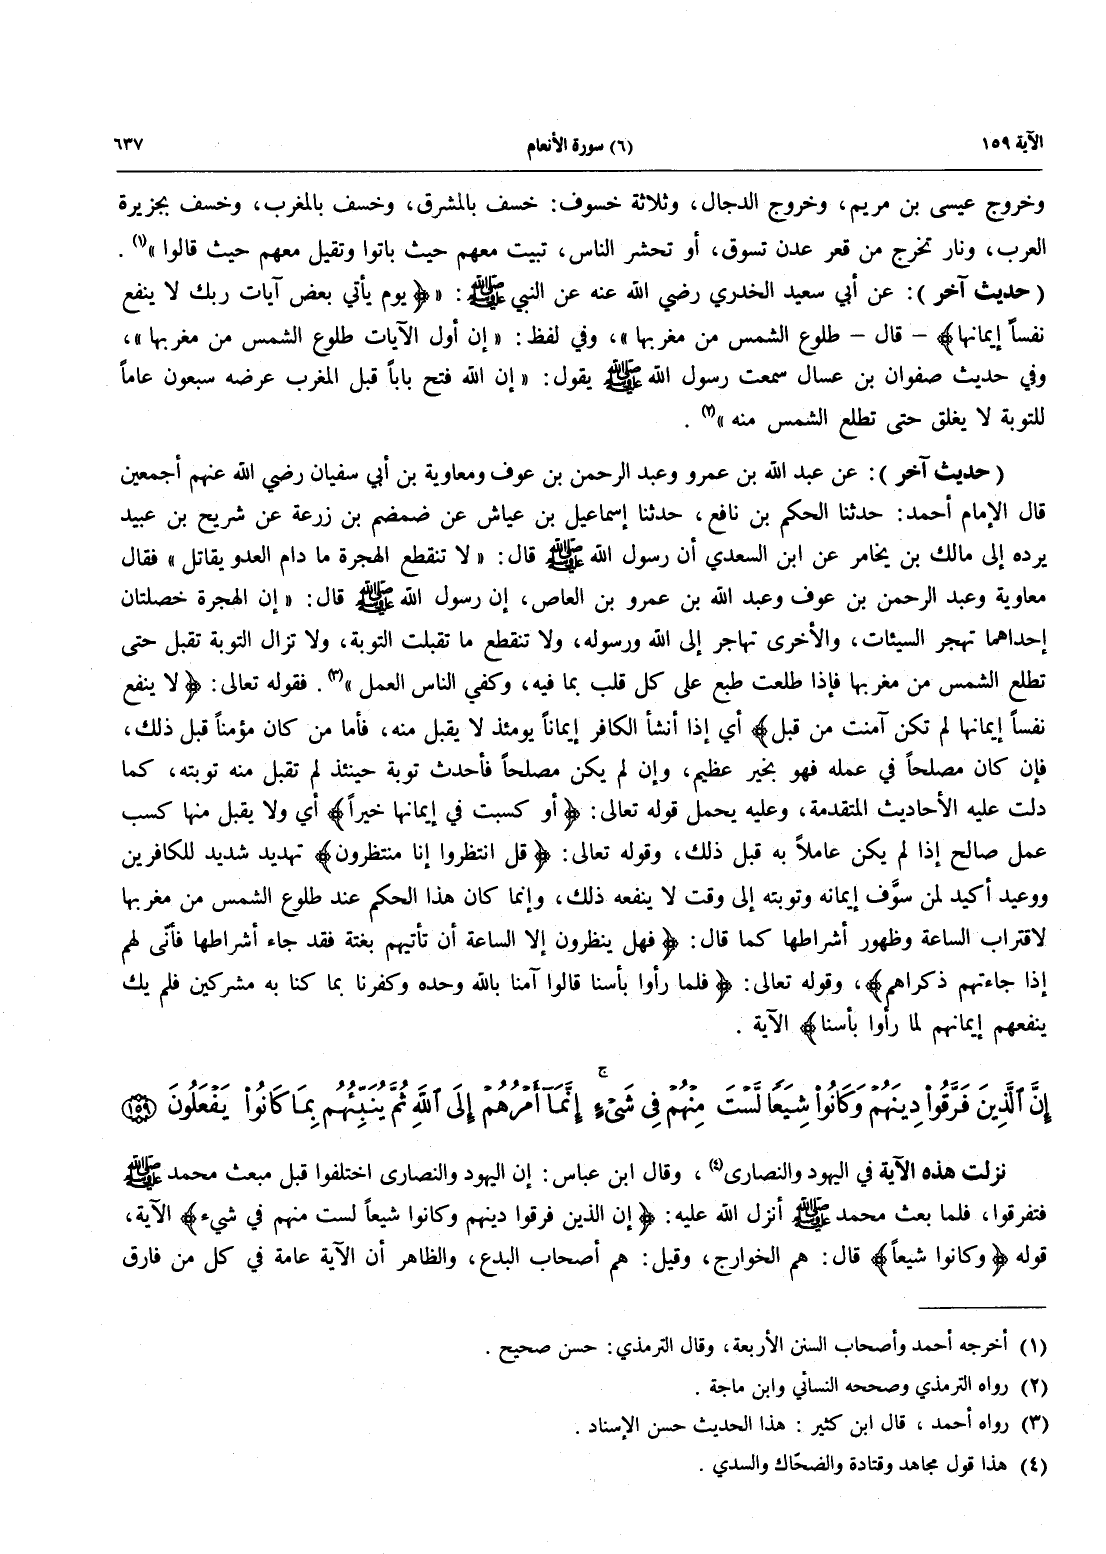 الآية ١٥٩
(٦) سورة الأنعام
٦٣٧
وخروج عيسى بن مريم، وخروج الدجال، وثلاثة خسوف: خسف بالمشرق، وخسف بالمغرب، وخسف بجزيرة
العرب، ونار تخرج من قعر عدن تسوق، أو تحشر الناس، تبيت معهم حيث باتوا وتقيل معهم حيث قالوا »(١) .
( حديث آخر ): عن أبي سعيد الخدري رضي الله عنه عن النبي ﷺ: « ﴿ يوم يأتي بعض آيات ربك لا ينفع
نفساً إيمانها﴾ – قال – طلوع الشمس من مغربها »، وفي لفظ: « إن أول الآيات طلوع الشمس من مغربها »،
وفي حديث صفوان بن عسال سمعت رسول الله ﷺ يقول: « إن الله فتح باباً قبل المغرب عرضه سبعون عاماً
للتوبة لا يغلق حتى تطلع الشمس منه »(٢) .
( حديث آخر ): عن عبد الله بن عمرو وعبد الرحمن بن عوف ومعاوية بن أبي سفيان رضي الله عنهم أجمعين
قال الإمام أحمد: حدثنا الحكم بن نافع، حدثنا إسماعيل بن عياش عن ضمضم بن زرعة عن شريح بن عبيد
يرده إلى مالك بن يخامر عن ابن السعدي أن رسول الله ﷺ قال: « لا تنقطع الهجرة ما دام العدو يقاتل » فقال
معاوية وعبد الرحمن بن عوف وعبد الله بن عمرو بن العاص، إن رسول الله ﷺ قال: « إن الهجرة خصلتان
إحداهما تهجر السيئات، والأخرى تهاجر إلى الله ورسوله، ولا تنقطع ما تقبلت التوبة، ولا تزال التوبة تقبل حتى
تطلع الشمس من مغربها فإذا طلعت طبع على كل قلب بما فيه، وكفي الناس العمل »(٣). فقوله تعالى: ﴿ لا ينفع
نفساً إيمانها لم تكن آمنت من قبل﴾ أي إذا أنشأ الكافر إيماناً يومئذ لا يقبل منه، فأما من كان مؤمناً قبل ذلك،
فإن كان مصلحاً في عمله فهو بخير عظيم، وإن لم يكن مصلحاً فأحدث توبة حينئذ لم تقبل منه توبته، كما
دلت عليه الأحاديث المتقدمة، وعليه يحمل قوله تعالى: ﴿ أو كسبت في إيمانها خيراً﴾ أي ولا يقبل منها كسب
عمل صالح إذا لم يكن عاملاً به قبل ذلك، وقوله تعالى: ﴿ قل انتظروا إنا منتظرون﴾ تهديد شديد للكافرين
ووعيد أكيد لمن سوَّف إيمانه وتوبته إلى وقت لا ينفعه ذلك، وإنما كان هذا الحكم عند طلوع الشمس من مغربها
لاقتراب الساعة وظهور أشراطها كما قال: ﴿ فهل ينظرون إلا الساعة أن تأتيهم بغتة فقد جاء أشراطها فأنّى لهم
إذا جاءتهم ذكراهم﴾، وقوله تعالى: ﴿ فلما رأوا بأسنا قالوا آمنا بالله وحده وكفرنا بما كنا به مشركين فلم يك
ينفعهم إيمانهم لما رأوا بأسنا﴾ الآية .
إِنَّ ٱلَّذِينَ فَرَّقُوا۟ دِينَهُمْ وَكَانُوا۟ شِيَعًا لَّسْتَ مِنْهُمْ فِى شَىْءٍ ۚ إِنَّمَآ أَمْرُهُمْ إِلَى ٱللَّهِ ثُمَّ يُنَبِّئُهُم بِمَا كَانُوا۟ يَفْعَلُونَ ﴿١٥٩﴾
نزلت هذه الآية في اليهود والنصارى(٤) ، وقال ابن عباس: إن اليهود والنصارى اختلفوا قبل مبعث محمد ﷺ
فتفرقوا، فلما بعث محمد ﷺ أنزل الله عليه: ﴿ إن الذين فرقوا دينهم وكانوا شيعاً لست منهم في شيء﴾ الآية،
قوله ﴿ وكانوا شيعاً﴾ قال: هم الخوارج، وقيل: هم أصحاب البدع، والظاهر أن الآية عامة في كل من فارق
(١) أخرجه أحمد وأصحاب السنن الأربعة، وقال الترمذي: حسن صحيح .
(٢) رواه الترمذي وصححه النسائي وابن ماجة .
(٣) رواه أحمد ، قال ابن كثير : هذا الحديث حسن الإسناد .
(٤) هذا قول مجاهد وقتادة والضحّاك والسدي .